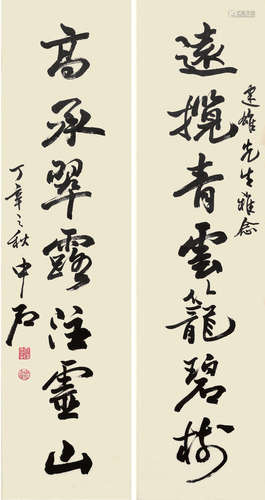 建雄先生雅念
遠攬青雲籠碧樹
高承翠露注靈山
丁亥之秋中石